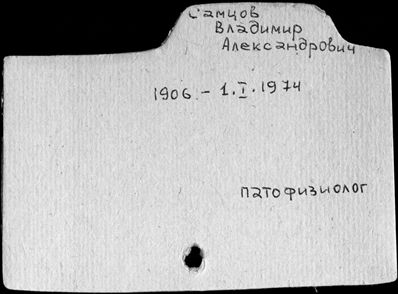 Самцов
Владимир
Александрович
1906 - 1.I.1974
патофизиолог